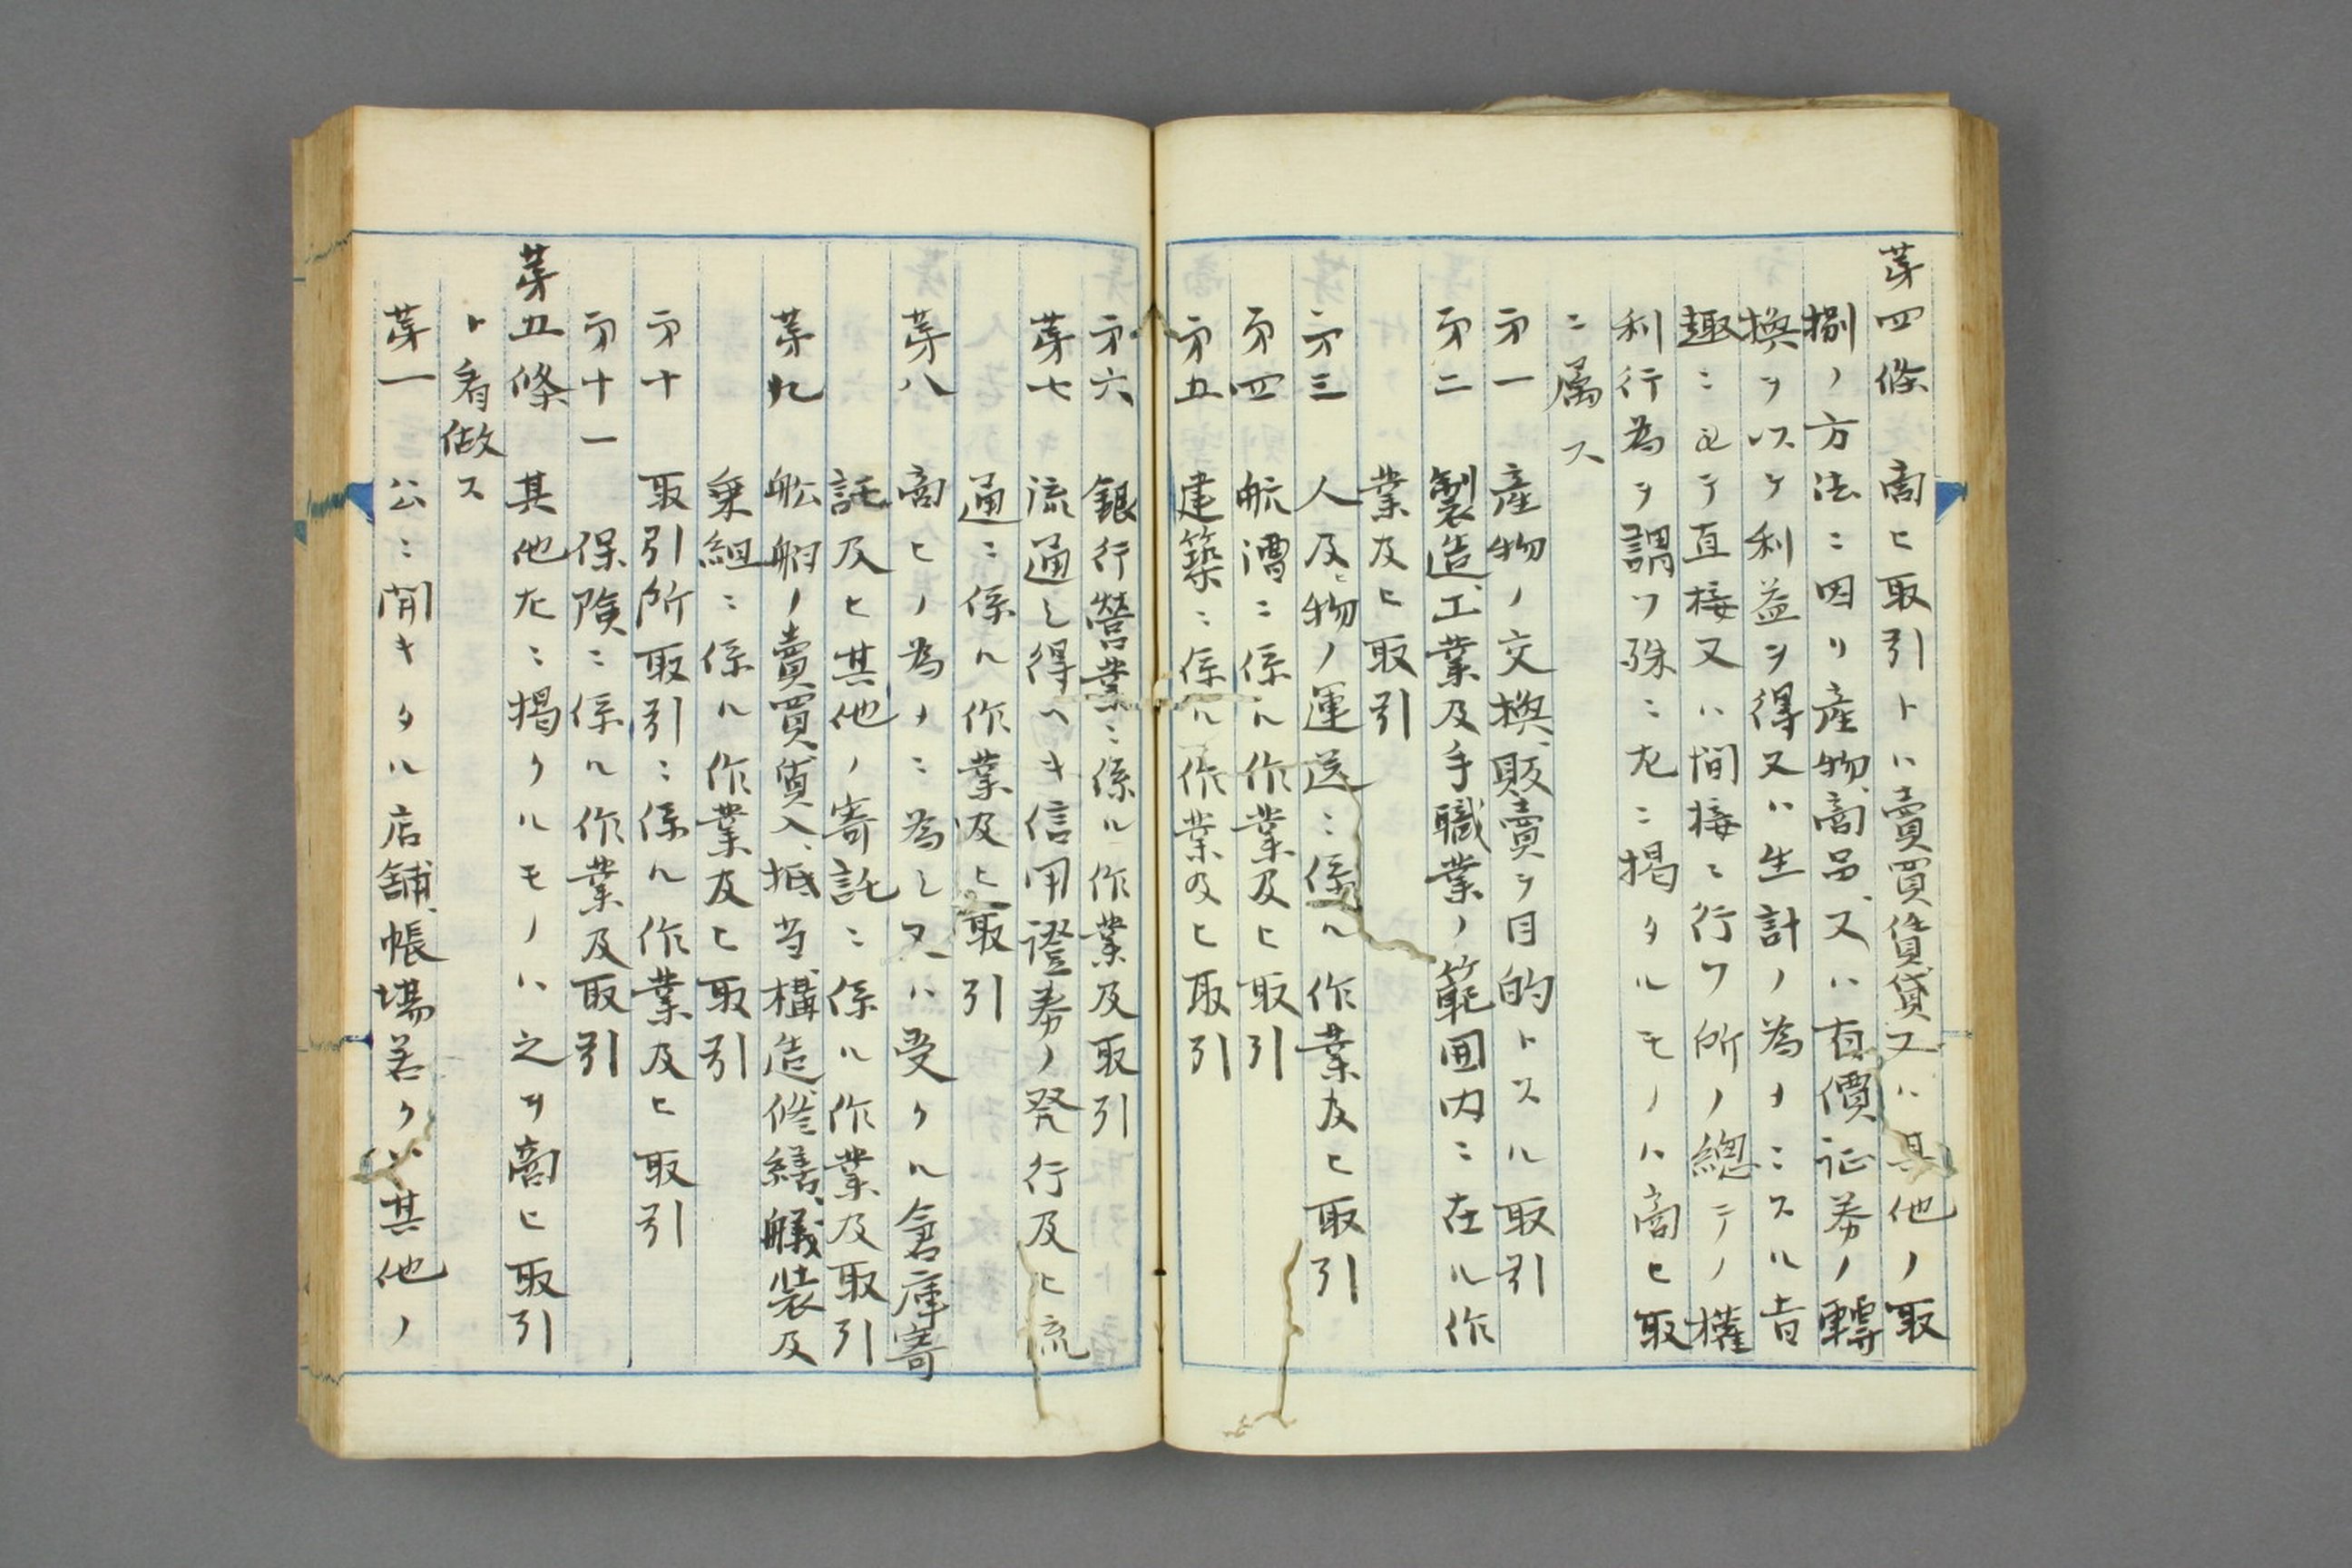 第四條　商ヒ取引トハ賣買賃貸又ハ其他ノ取
捌ノ方法ニ因リ産物、商品、又ハ有價証券ノ轉
換ヲ以テ利益ヲ得又ハ生計ノ為メニスル旨
趣ニ出テ直接又ハ間接ニ行フ所ノ總テノ權
利行為ヲ謂フ殊ニ左ニ掲タルモノハ商ヒ取
ニ属ス
第一　産物ノ交換、販賣ヲ目的トスル取引
第二　製造、工業及手職業ノ範囲内ニ在ル作
業及ヒ取引
第三　人及ヒ物ノ運送ニ係ル作業及ヒ取引
第四　航漕ニ係ル作業及ヒ取引
第五　建築ニ係ル作業及ヒ取引
第六　銀行營業ニ係ル作業及取引
第七　流通シ得ヘキ信用證券ノ発行及ヒ流
通ニ係ル作業及ヒ取引
第八　商ヒノ為メニ為シ又ハ受クル倉庫寄
託及ヒ其他ノ寄託ニ係ル作業及取引
第九　舩舶ノ賣買、質入、抵当、構造、修繕、艤装及
乗組ニ係ル作業及ヒ取引
第十　取引所取引ニ係ル作業及ヒ取引
第十一　保険ニ係ル作業及取引
第五條　其他左ニ掲クルモノハ之ヲ商ヒ取引
ト看做ス
第一　公ニ開キタル店舗、帳場若クハ其他ノ